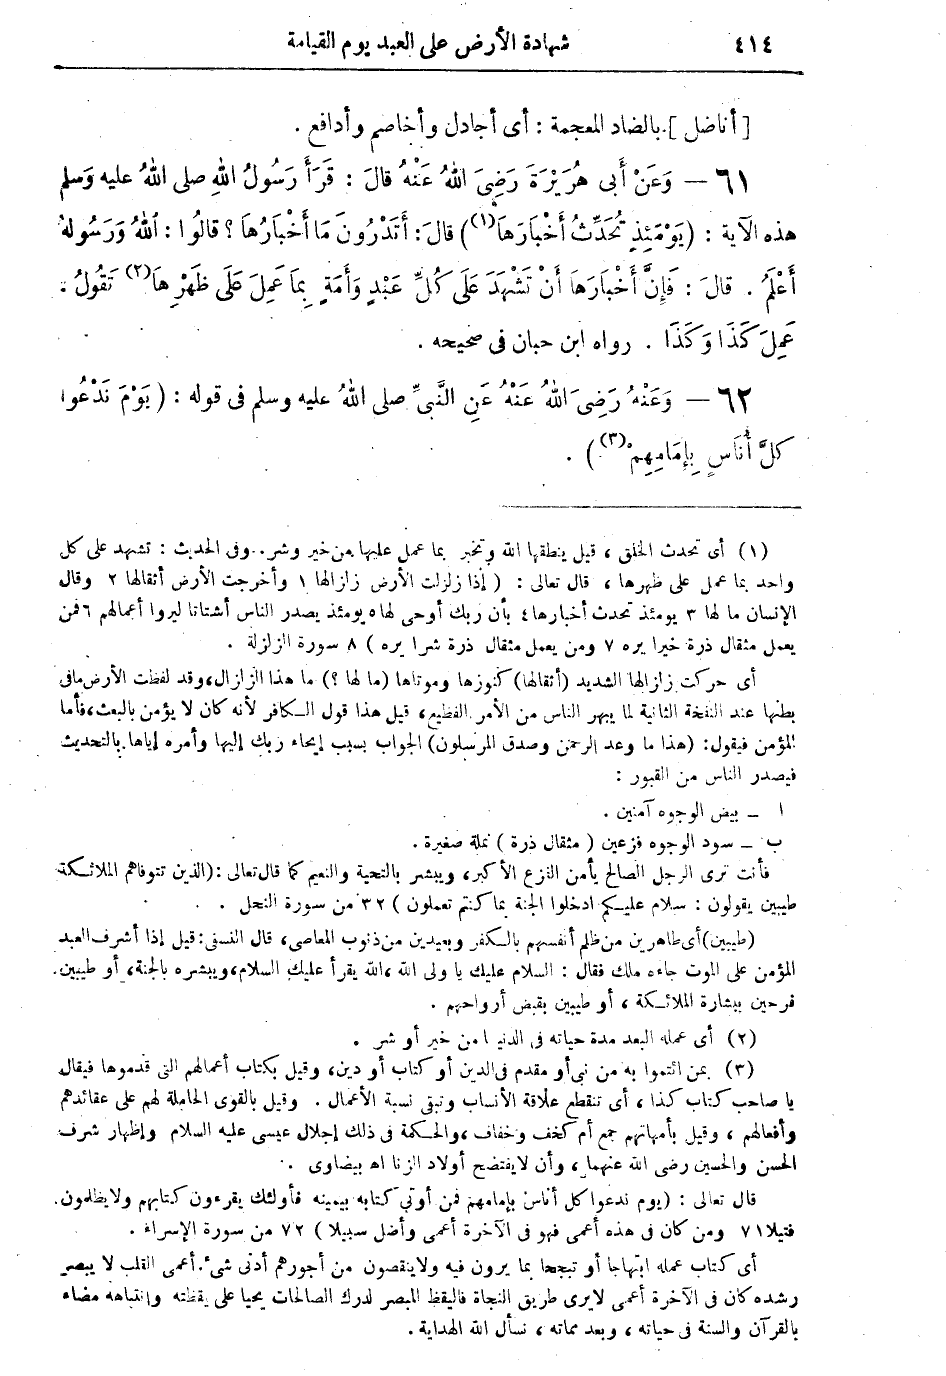 ٤١٤ شهادة الأرض على العبد يوم القيامة
[ أناضل ] بالضاد المعجمة : أى أجادل وأخاصم وأدافع .
٦١ — وَعَنْ أَبى هُرَيْرَةَ رَضِىَ اللهُ عَنْهُ قالَ : قَرَأَ رَسُولُ اللهِ صلى اللهُ عليه وَسلم
هذه الآية : (يَوْمَئِذٍ تُحَدِّثُ أَخْبَارَهَا(١)) قالَ: أَتَدْرُونَ مَا أَخْبَارُهَا ؟ قالُوا : اللهُ وَرَسُولهُ
أَعْلَمُ . قالَ : فَإِنَّ أَخْبَارَهَا أَنْ تَشْهَدَ عَلَى كُلِّ عَبْدٍ وَأَمَةٍ بِمَا عَمِلَ عَلَى ظَهْرِهَا(٢) تَقُولُ :
عَمِلَ كَذَا وَكَذَا . رواه ابن حبان فى صحيحه .
٦٢ — وَعَنْهُ رَضِىَ اللهُ عَنْهُ عَنِ النَّبِىِّ صلى اللهُ عليه وسلم فى قوله : ( يَوْمَ نَدْعُوا
كلَّ أُنَاسٍ بِإِمَامِهِمْ(٣)) .
(١) أى تحدث الخلق ، قيل ينطقها الله وتخبر بما عمل عليها من خير وشر.. وفى الحديث : تشهد على كل
واحد بما عمل على ظهرها ، قال تعالى : ( إذا زلزلت الأرض زلزالها ١ وأخرجت الأرض أثقالها ٢ وقال
الإنسان ما لها ٣ يومئذ تحدث أخبارها ٤ بأن ربك أوحى لها ٥ يومئذ يصدر الناس أشتاتا ليروا أعمالهم ٦ فمن
يعمل مثقال ذرة خيرا يره ٧ ومن يعمل مثقال ذرة شرا يره ) ٨ سورة الزلزلة .
أى حركت زلزالها الشديد (أثقالها) كنوزها وموتاها (ما لها ؟) ما هذا الزلزال، وقد لفظت الأرض مافى
بطنها عند النفخة الثانية لما يبهر الناس من الأمر الفظيع، قيل هذا قول الكافر لأنه كان لا يؤمن بالبعث، فأما
المؤمن فيقول: (هذا ما وعد الرحمن وصدق المرسلون) الجواب بسبب إيحاء ربك إليها وأمره إياها بالتحديث
فيصدر الناس من القبور :
ا - بيض الوجوه آمنين .
ب - سود الوجوه فزعين ( مثقال ذرة ) نملة صغيرة .
فأنت ترى الرجل الصالح يأمن النزع الأكبر، ويبشر بالتحية والنعيم كما قال تعالى : (الذين تتوفاهم الملائكة
طيبين يقولون : سلام عليكم ادخلوا الجنة بما كنتم تعملون ) ٣٢ من سورة النحل .
(طيبين) أى طاهرين من ظلم أنفسهم بالكفر وبعيدين من ذنوب المعاصى، قال النسفى: قيل إذا أشرف العبد
المؤمن على الموت جاءه ملك فقال : السلام عليك يا ولى الله ، الله يقرأ عليك السلام، ويبشره بالجنة، أو طيبين.
فرحين ببشارة الملائكة ، أو طيبين بقبض أرواحهم .
(٢) أى عمله البعد مدة حياته فى الدنيا من خير أو شر .
(٣) بمن ائتموا به من نبى أو مقدم فى الدين أو كتاب أو دين، وقيل بكتاب أعمالهم التى قدموها فيقال
يا صاحب كتاب كذا ، أى تنقطع علاقة الأنساب وتبقى نسبة الأعمال . وقيل بالقوى الحاملة لهم على عقائدهم
وأفعالهم ، وقيل بأمهاتهم جمع أم كخف وخفاف ، والحكمة فى ذلك إجلال عيسى عليه السلام وإظهار شرف
الحسن والحسين رضى الله عنهما، وأن لا يفتضح أولاد الزنا اه بيضاوى .
قال تعالى : (يوم ندعوا كل أناس بإمامهم فمن أوتى كتابه بيمينه فأولئك يقرءون كتابهم ولا يظلمون.
فتيلا ٧١ ومن كان فى هذه أعمى فهو فى الآخرة أعمى وأضل سبيلا ) ٧٢ من سورة الإسراء .
أى كتاب عمله ابتهاجا أو تبجحا بما يرون فيه ولا ينقصون من أجورهم أدنى شىء. أعمى القلب لا يبصر
رشده كان فى الآخرة أعمى لا يرى طريق النجاة فاليقظ المبصر لدرك الصالحات يحيا على يقظته وانتباهه مضاء
بالقرآن والسنة فى حياته ، وبعد مماته ، نسأل الله الهداية .